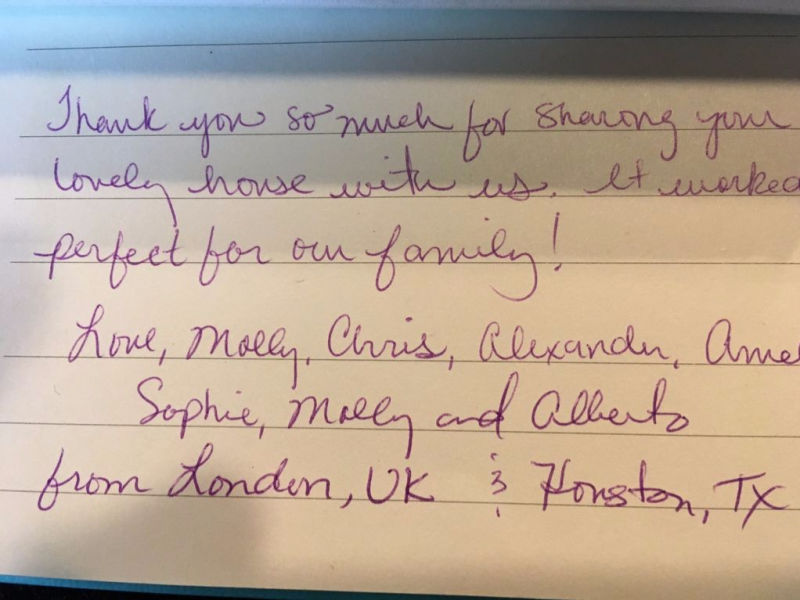 Thank you so much for sharing your
lovely house with us. It worked
perfect for our family!
Love, Molly, Chris, Alexander,
Sophie, Molly and Alberto
from London, UK & Houston, TX